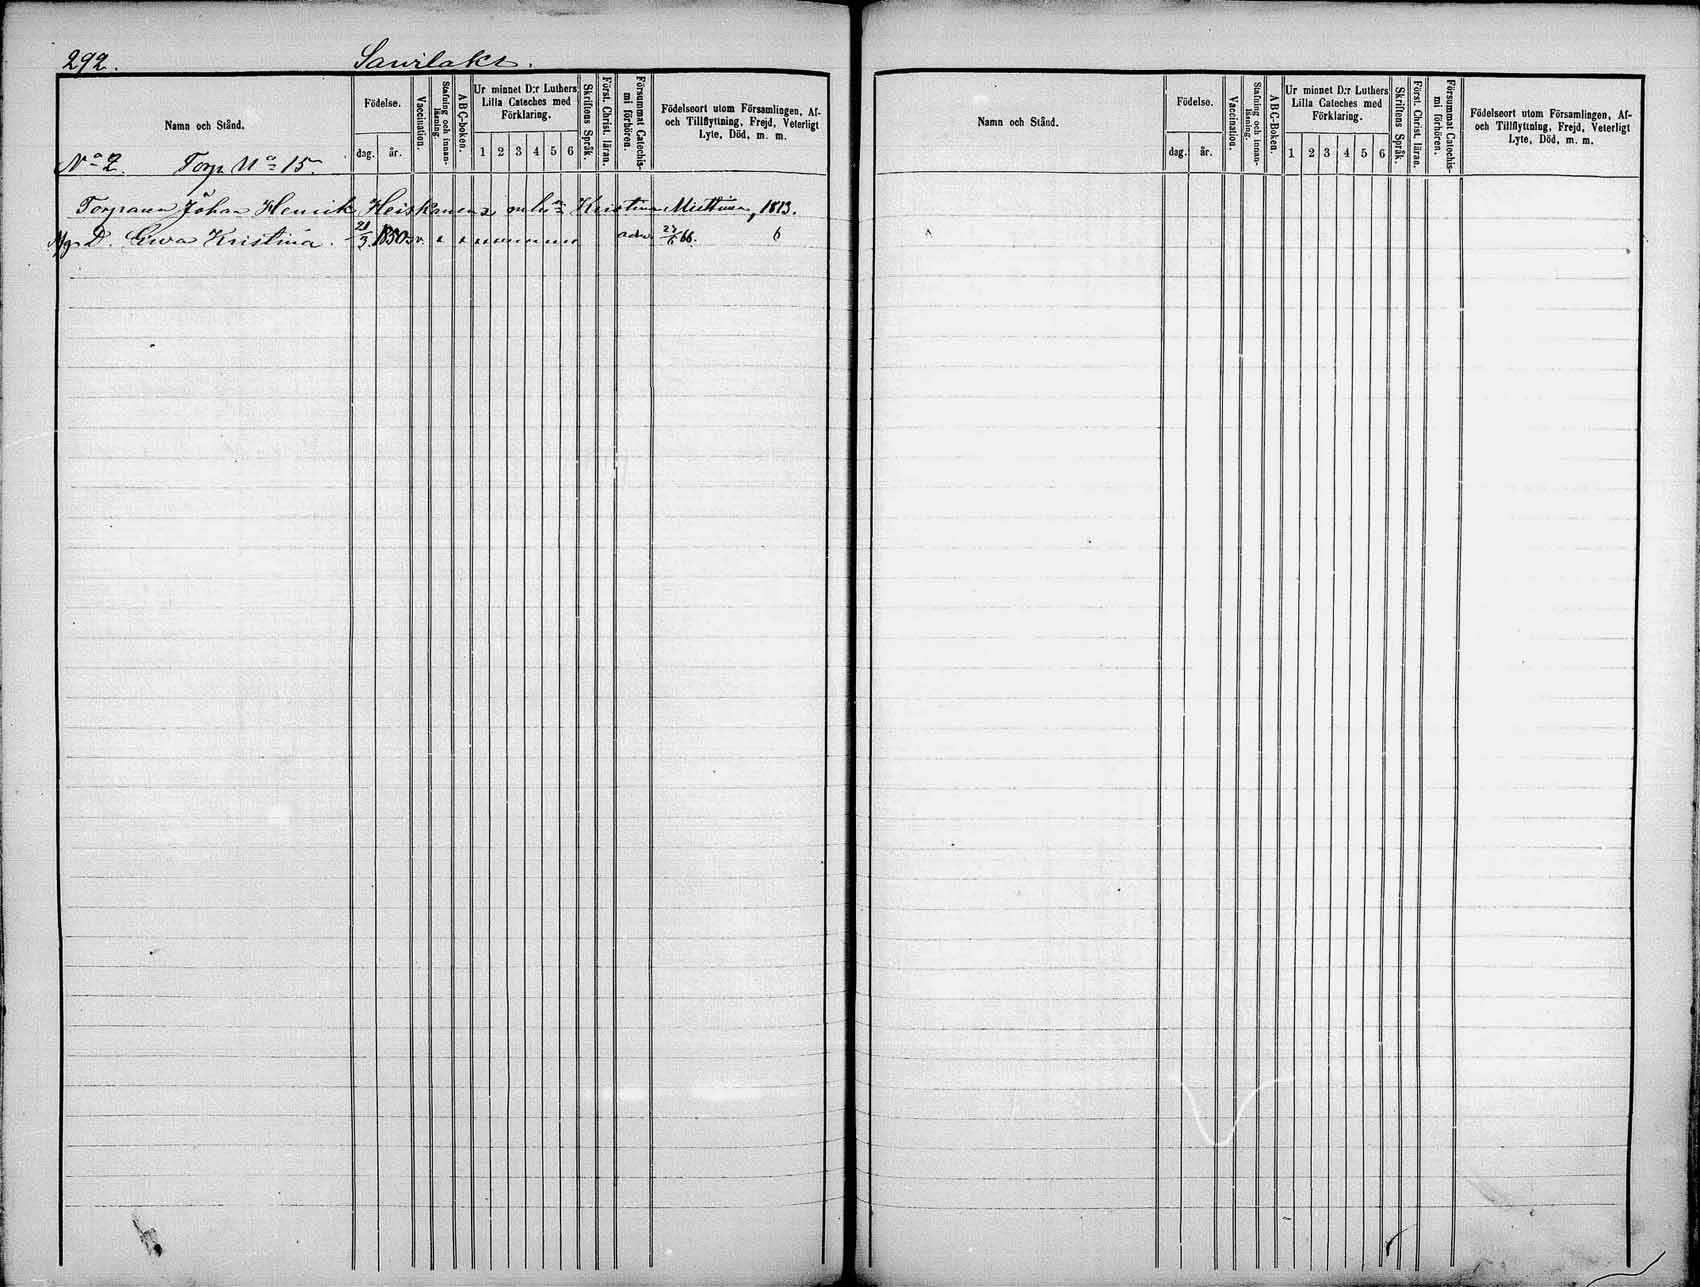 292. Sawilaks.
Namn och Stånd.
Födelse.
dag. år.
Vaccination.
Stafning och innan-läsning.
ABC-boken.
Ur minnet D:r Luthers
Lilla Cateches med
Förklaring.
1 2 3 4 5 6
Skriftens Språk.
Först. Christ. läran.
Försummat Catechis-
mi förhören.
Födelseort utom Församlingen, Af-
och Tillflyttning, Frejd, Veterligt
Lyte, Död, m. m.
No 2. Torp No 15.
Johan Henrik Heiskanens Kristina Miettinen, 1813.
D. Ewa Kristina. 21/3. 1850 v. 66. 6
Namn och Stånd.
Födelse.
dag. år.
Vaccination.
Stafning och innan-läsning.
ABC-Boken.
Ur minnet D:r Luthers
Lilla Cateches med
Förklaring.
1 2 3 4 5 6
Skriftens Språk.
Först. Christ. läran.
Försummat Catechis-
mi förhören.
Födelseort utom Församlingen, Af-
och Tillflyttning, Frejd, Veterligt
Lyte, Död, m. m.